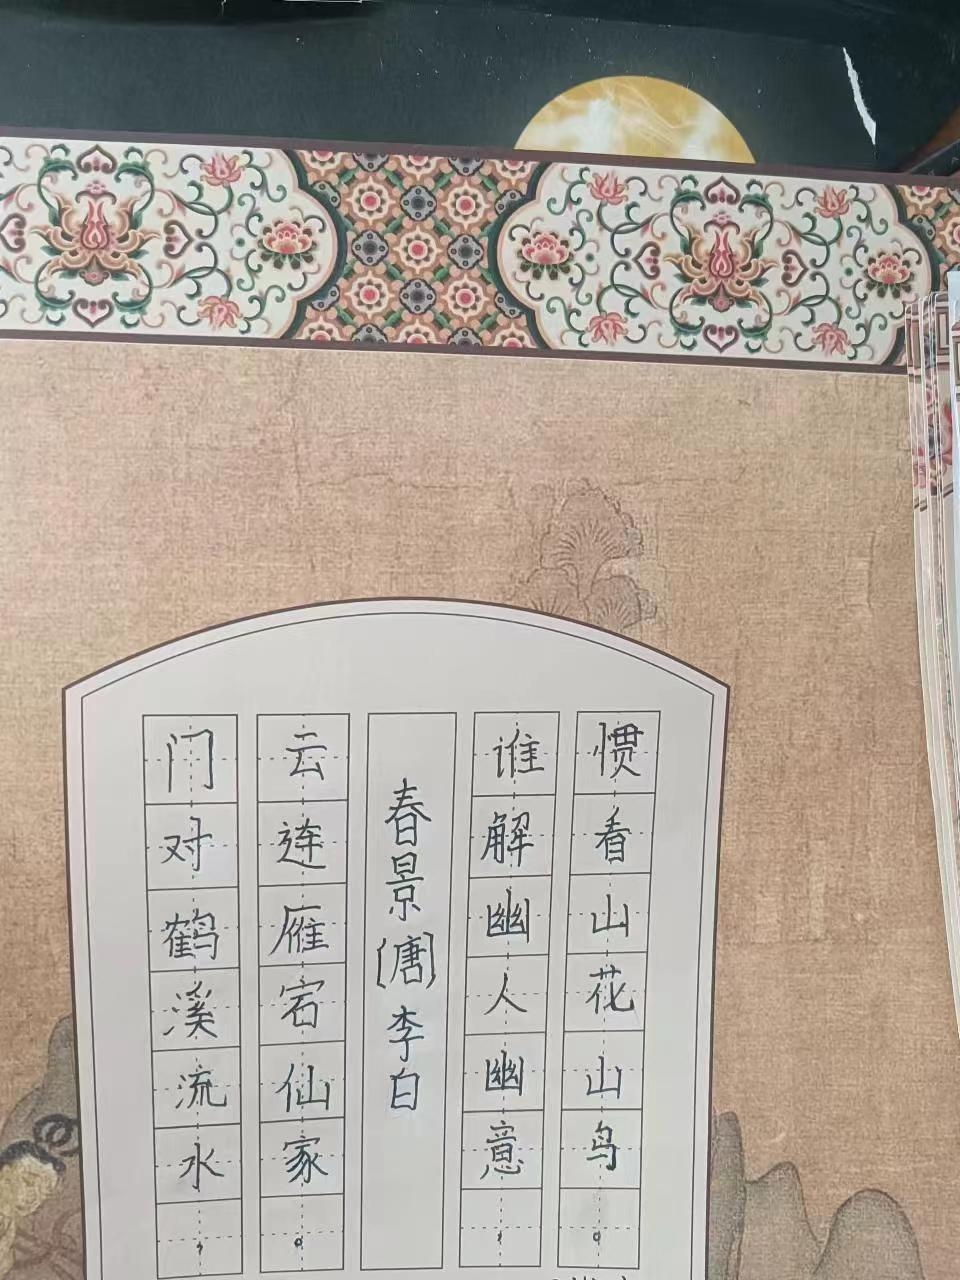 门对鹤溪流水，
云连雁宕仙家。
春景(唐)李白
谁解幽人幽意，
惯看山花山鸟。